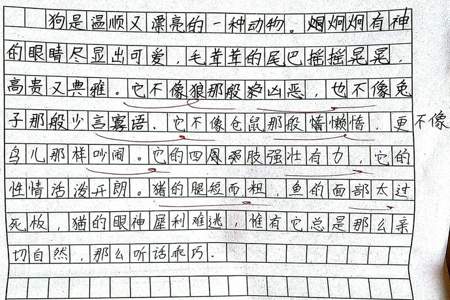 狗是温顺又漂亮的一种动物。炯炯有神
的眼睛尽显出可爱，毛茸茸的尾巴摇摇晃晃，
高贵又典雅。它不像狼那般凶恶，也不像兔
子那般少言寡语，它不像仓鼠那般懒惰，更不像
鸟儿那样吵闹。它的四肢强壮有力，它的
性情活泼开朗。猪的腿短而粗，鱼的面部太过
死板，猫的眼神犀利难逃，惟有它总是那么亲
切自然，那么听话乖巧.